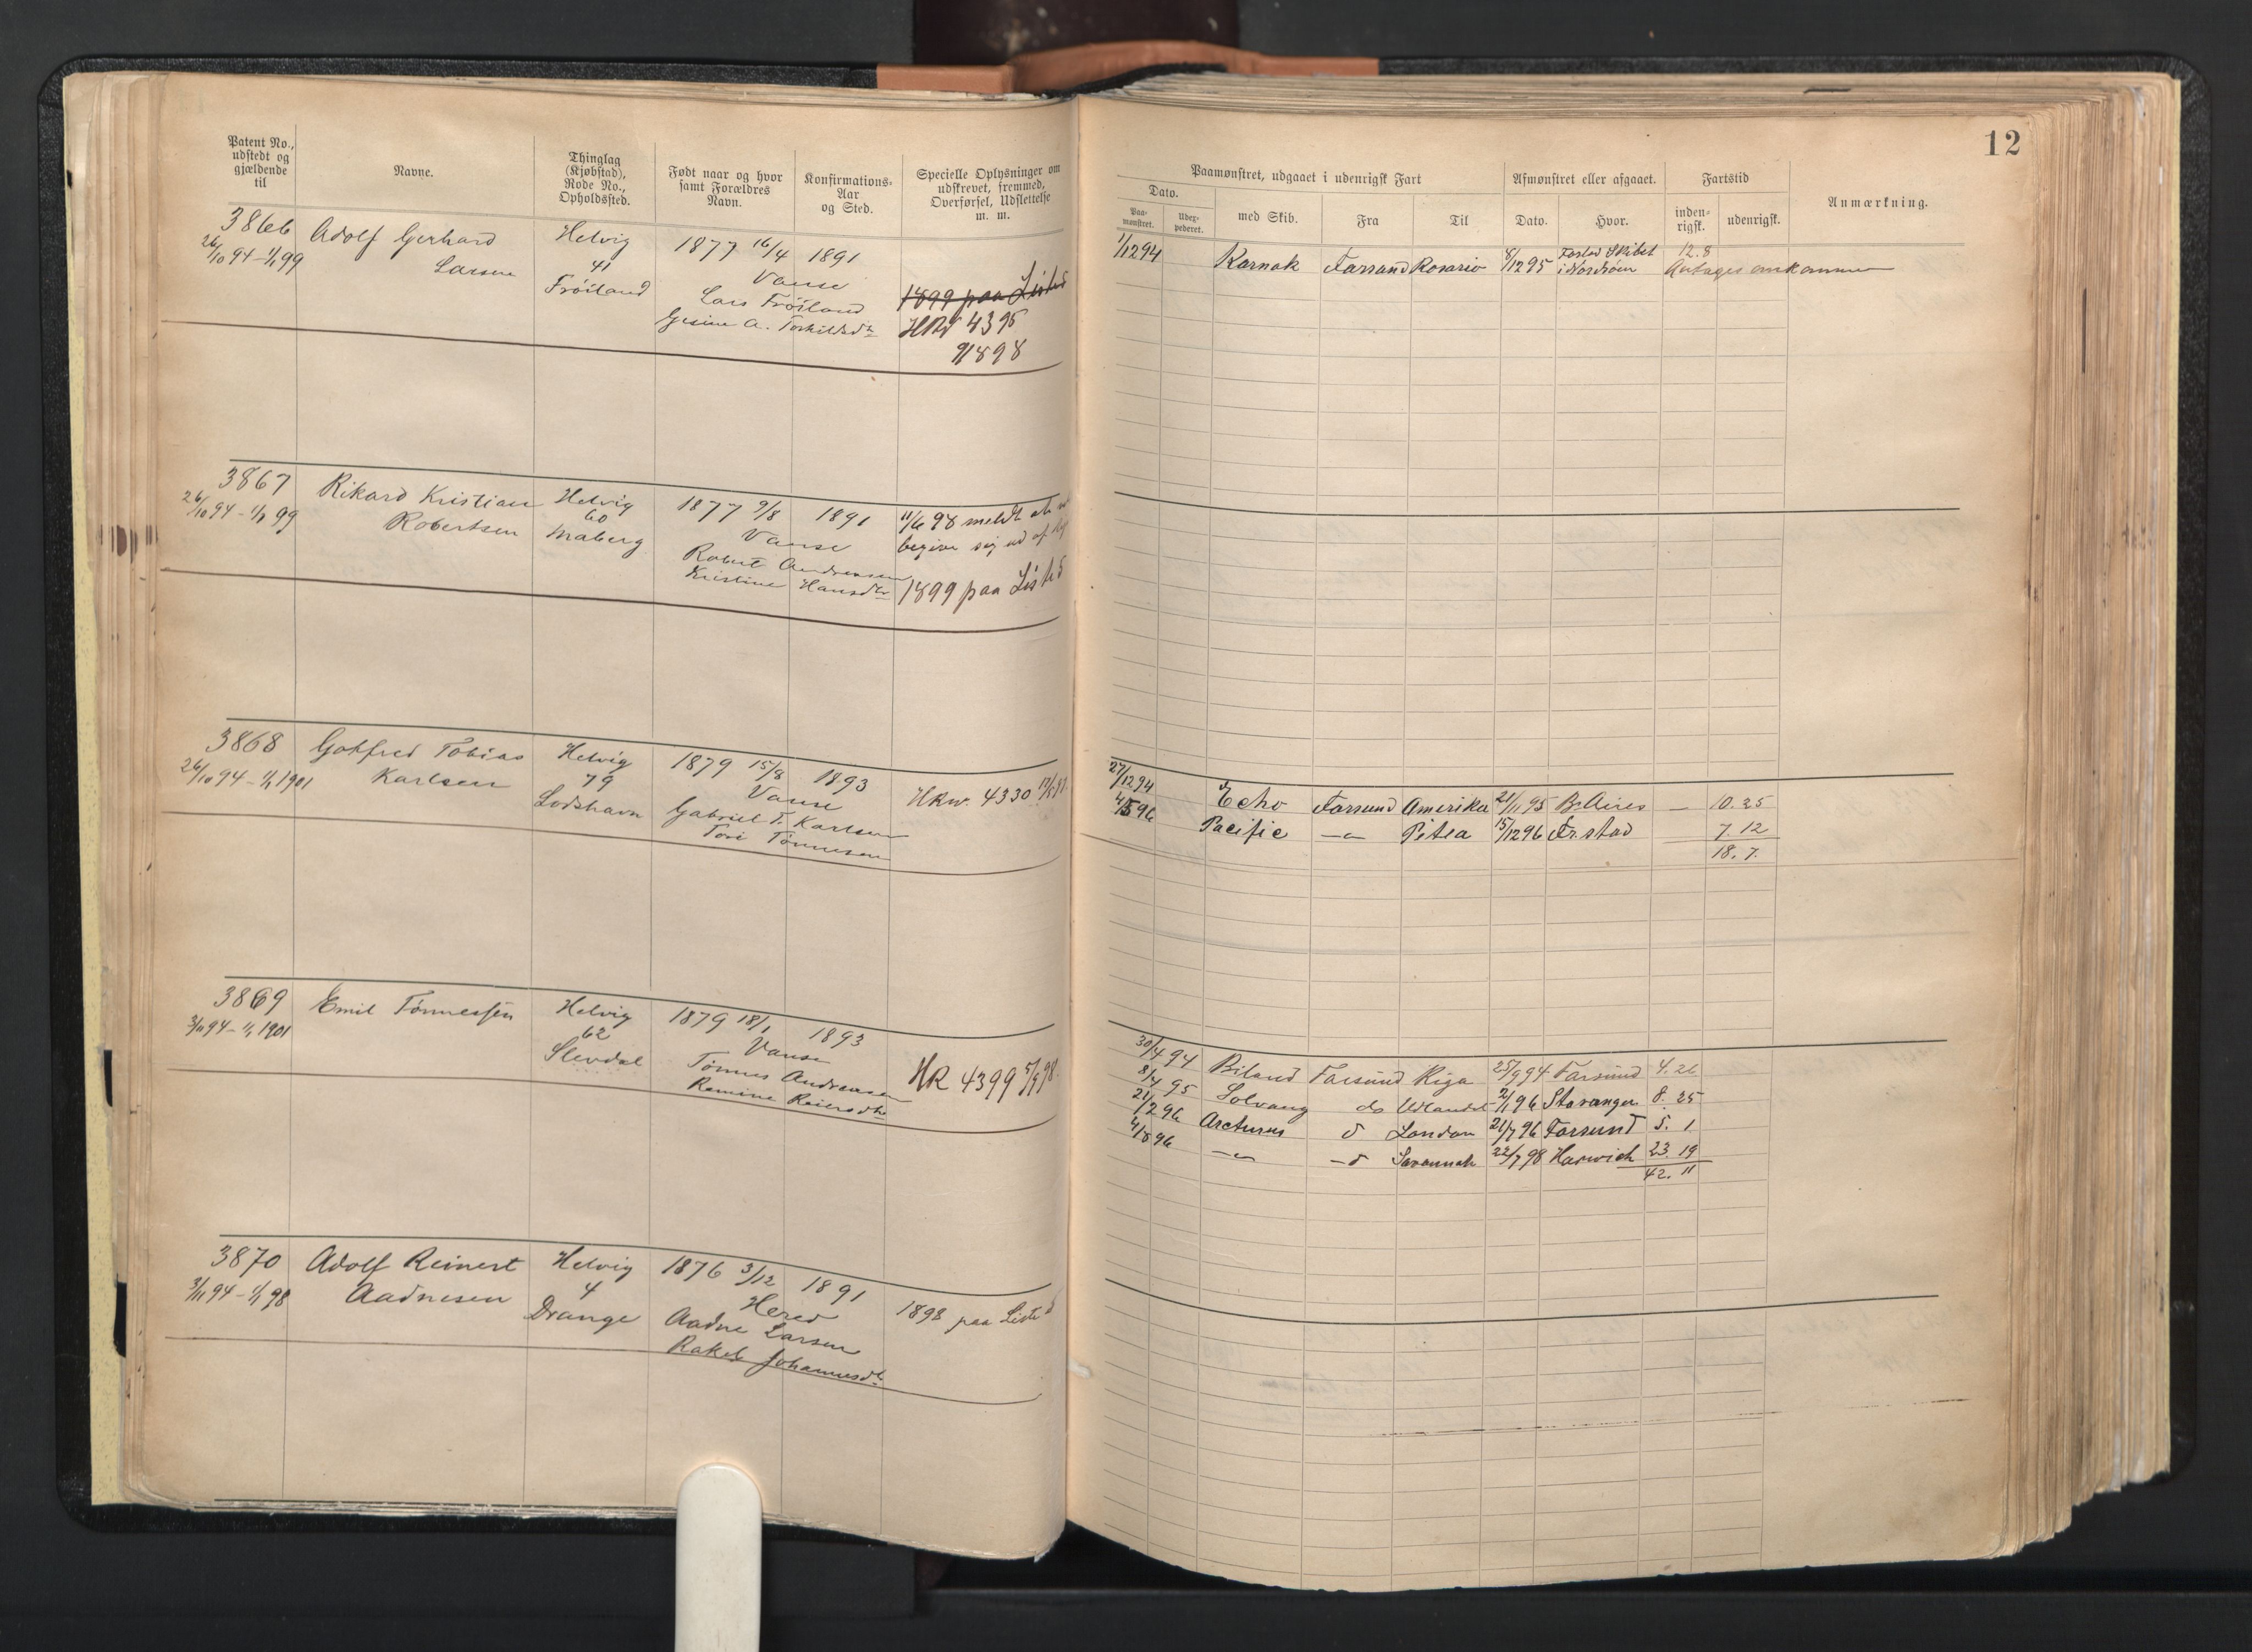 12
Patent No., udstedt og gjældende til
Navne.
Thinglag (Kjøbstad), Rode No., Opholdssted.
Født naar og hvor samt Forældres Navn.
Konfirmations-Aar og Sted.
Specielle Oplysninger om udskrevet, fremmed, Overførsel, Udslettelse m. m.
Paamønstret, udgaaet i udenrigsk Fart
Afmønstret eller afgaaet.
Fartstid
Anmærkning.
Dato.
Paa-mønstret.
Udex-pederet.
med Skib.
Fra
Til
Dato.
Hvor.
inden-rigsk.
udenrigsk.
3866
26/10 94 - 1/1 99
Adolf Gerhard
Larsen
Helvig
41
Frøiland
1877 16/4 1891
Vanse
Lars Frøiland
Gesine A. Torkildsdtr
1899 paa Listed
HRV 4395
9/898
1/1294 Karnak Farsund Rosario 8/1295 Forlod Skibet
i Nordsøen
12.8
Antages omkommen
3867
26/10 94 - 1/1 99
Rikard Kristian
Robertsen
Helvig
60
Maberg
1877 9/8 1891
Vanse
Robert Andreassen
Kristine Hansdtr
11/6 98 meldt at
begive sig ud af
1899 paa Listed
3868
26/10 94 - 1/1 1901
Gotfred Tobias
Karlsen
Helvig
79
Lodshavn
1879 15/8 1893
Vanse
Gabriel T. Karlsen
Tori Tønnesen
HRw. 4330
27/1294 Echo Farsund Amerika 21/11 95 B. Aires — 10.25
4/5 96 Pacific —"— Pitea 15/1296 Fr.stad 7.12
18.7.
3869
3/11 94 - 1/1 1901
Emil Tønnessen
Helvig
62
Slevdal
1879 18/1 1893
Vanse
Tønnes Andreasen
Ramine Reiersdtr
HR 4399 5/9 98.
30/4 94 Biland Farsund Riga 25/9 94 Farsund 4.26
8/4 95 Solvang do Udlandet 2/1 96 Stavanger 8.25
21/2 96 Arcturus d London 21/7 96 Farsund 5.1
4/8 96 —"— —d Savannah 22/7 98 Harwich 23.19
42.11
3870
3/11 94 - 1/1 98
Adolf Reinert
Aadnesen
Helvig
4
Drange
1876 3/12 1891
Hered
Aadne Larsen
Rakel Johannesdtr
1898 paa Listed